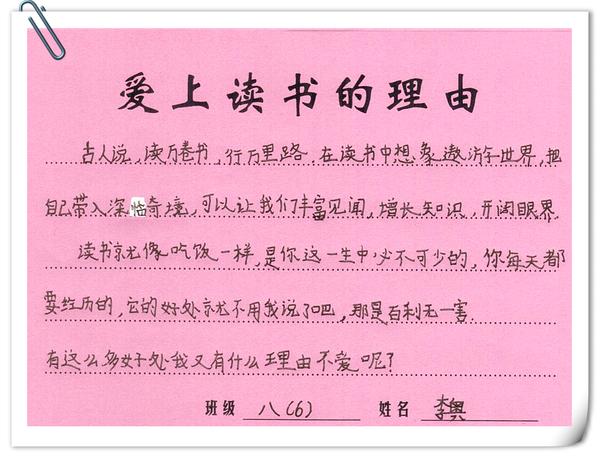 爱上读书的理由
古人说，读万卷书，行万里路，在读书中想象遨游世界，把
自己带入深临奇境，可以让我们丰富见闻，增长知识，开阔眼界.
读书就像吃饭一样，是你这一生中必不可少的，你每天都
要经历的，它的好处就不用我说了吧，那是百利无一害.
有这么多好处我又有什么理由不爱呢？
班级 八(6) 姓名 李奥